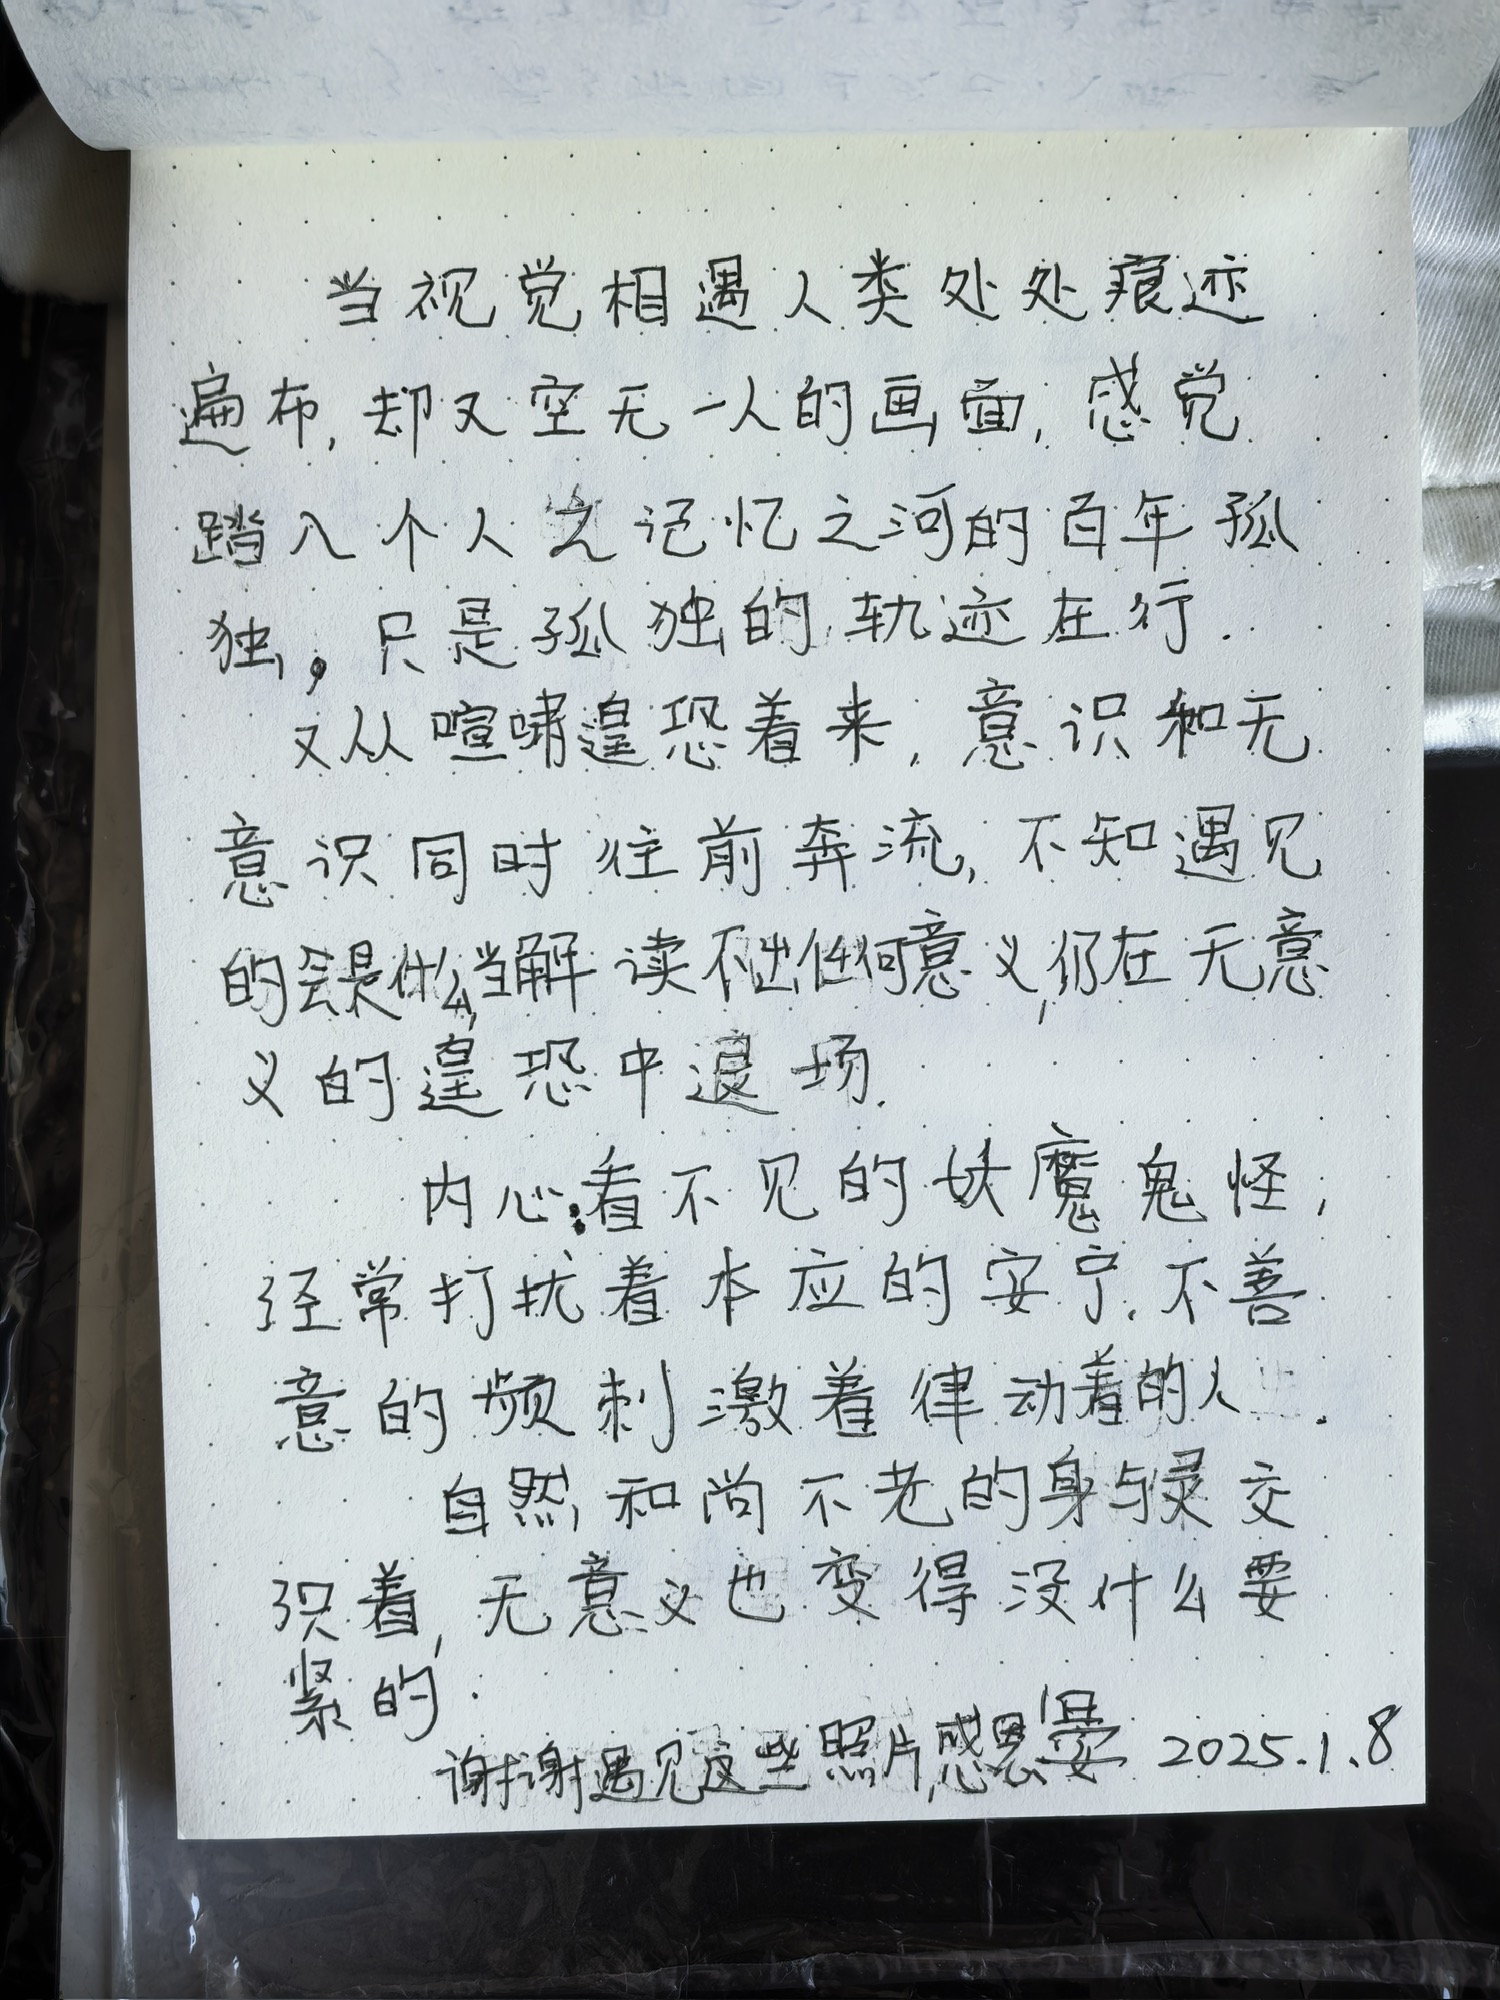 当视觉相遇人类处处痕迹
遍布,却又空无一人的画面,感觉
踏入个人之记忆之河的百年孤
独,只是孤独的轨迹在行.
又从喧啸遑恐着来,意识和无
意识同时往前奔流,不知遇见
的会是什么,当解读不出任何意义,仍在无意
义的遑恐中退场.
内心:看不见的妖魔鬼怪,
经常打扰着本应的安宁.不善
意的频刺激着律动着的人.
自然和尚不老的身与灵交
织着,无意义也变得没什么要
紧的.
谢谢遇见这些照片,感恩 2025.1.8